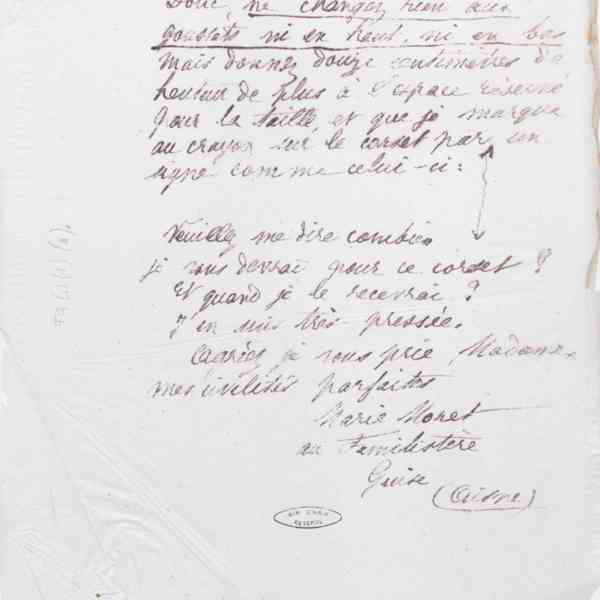 Donc, ne changez rien aux
goussets ni en haut, ni en bas
mais donnez douze centimètres de
hauteur de plus à l'espace réservé
pour la taille, et que je marque
au crayon sur le corset par un
signe comme celui-ci :
Veuillez me dire combien
je vous devrai pour ce corset ?
Et quand je le recevrai ?
J'en suis très pressée.
Agréez, je vous prie, Madame,
mes civilités parfaites
Marie Moret
au Familistère
Guise
(Aisne)